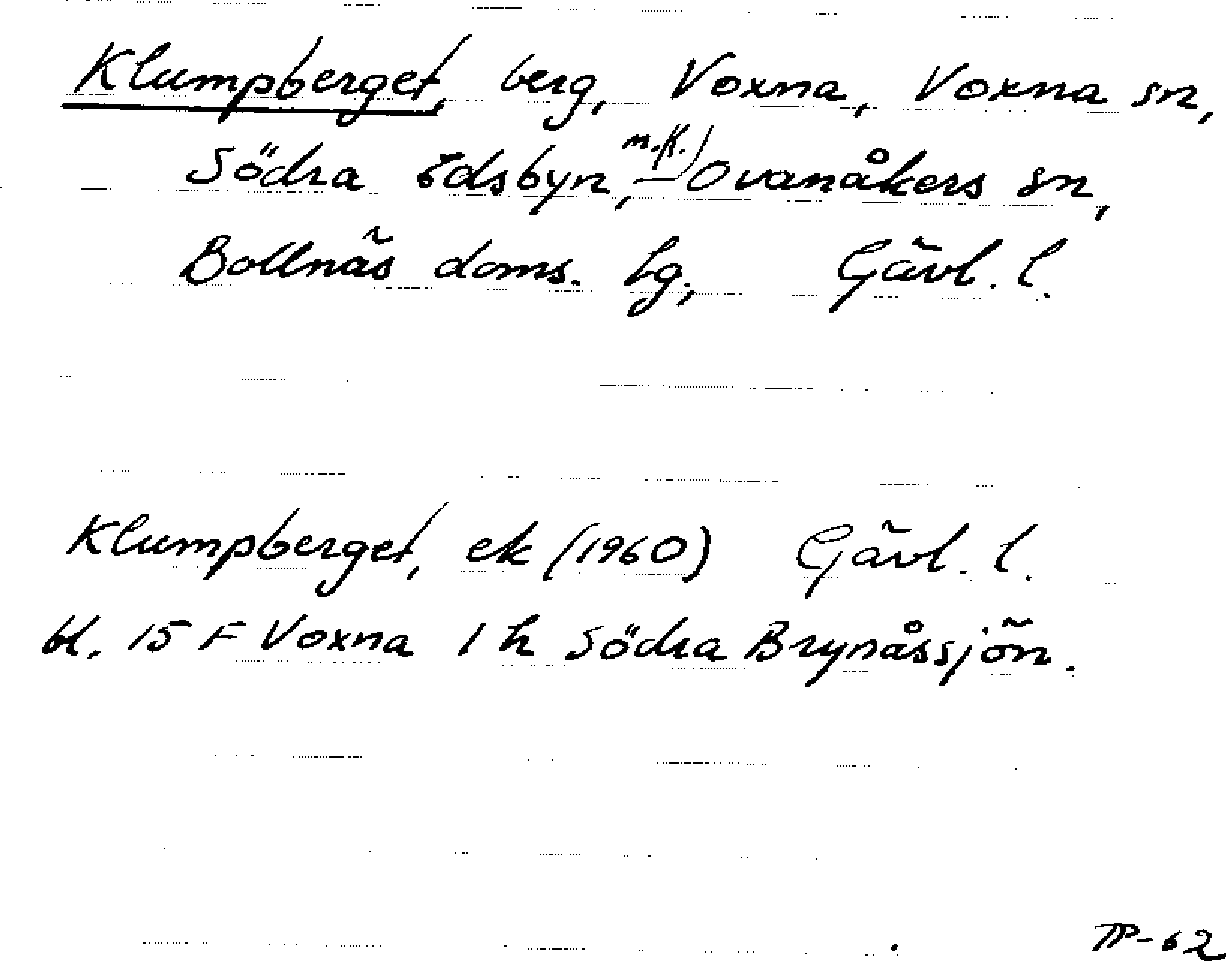 Klumpberget, berg, Voxna, Voxna sn,
Södra Edsbyn, m.fl. Ovanåkers sn,
Bollnäs doms. lg, Gävl. l.
Klumpberget, ek (1960) Gävl. l.
bl. 15 F Voxna 1 h Södra Brynåssjön.
TP-62